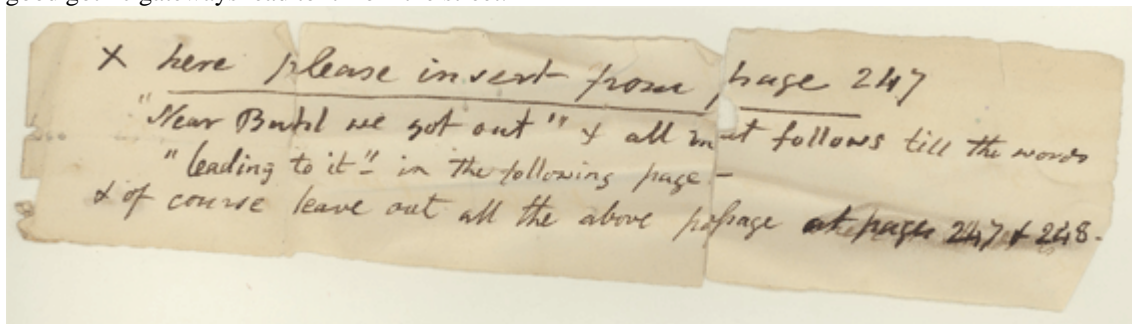 x here please insert from page 247
"Near Buhl we got out" & all that follows till the words
"leading to it" - in the following page -
& of course leave out all the above passage at page 247 & 248.